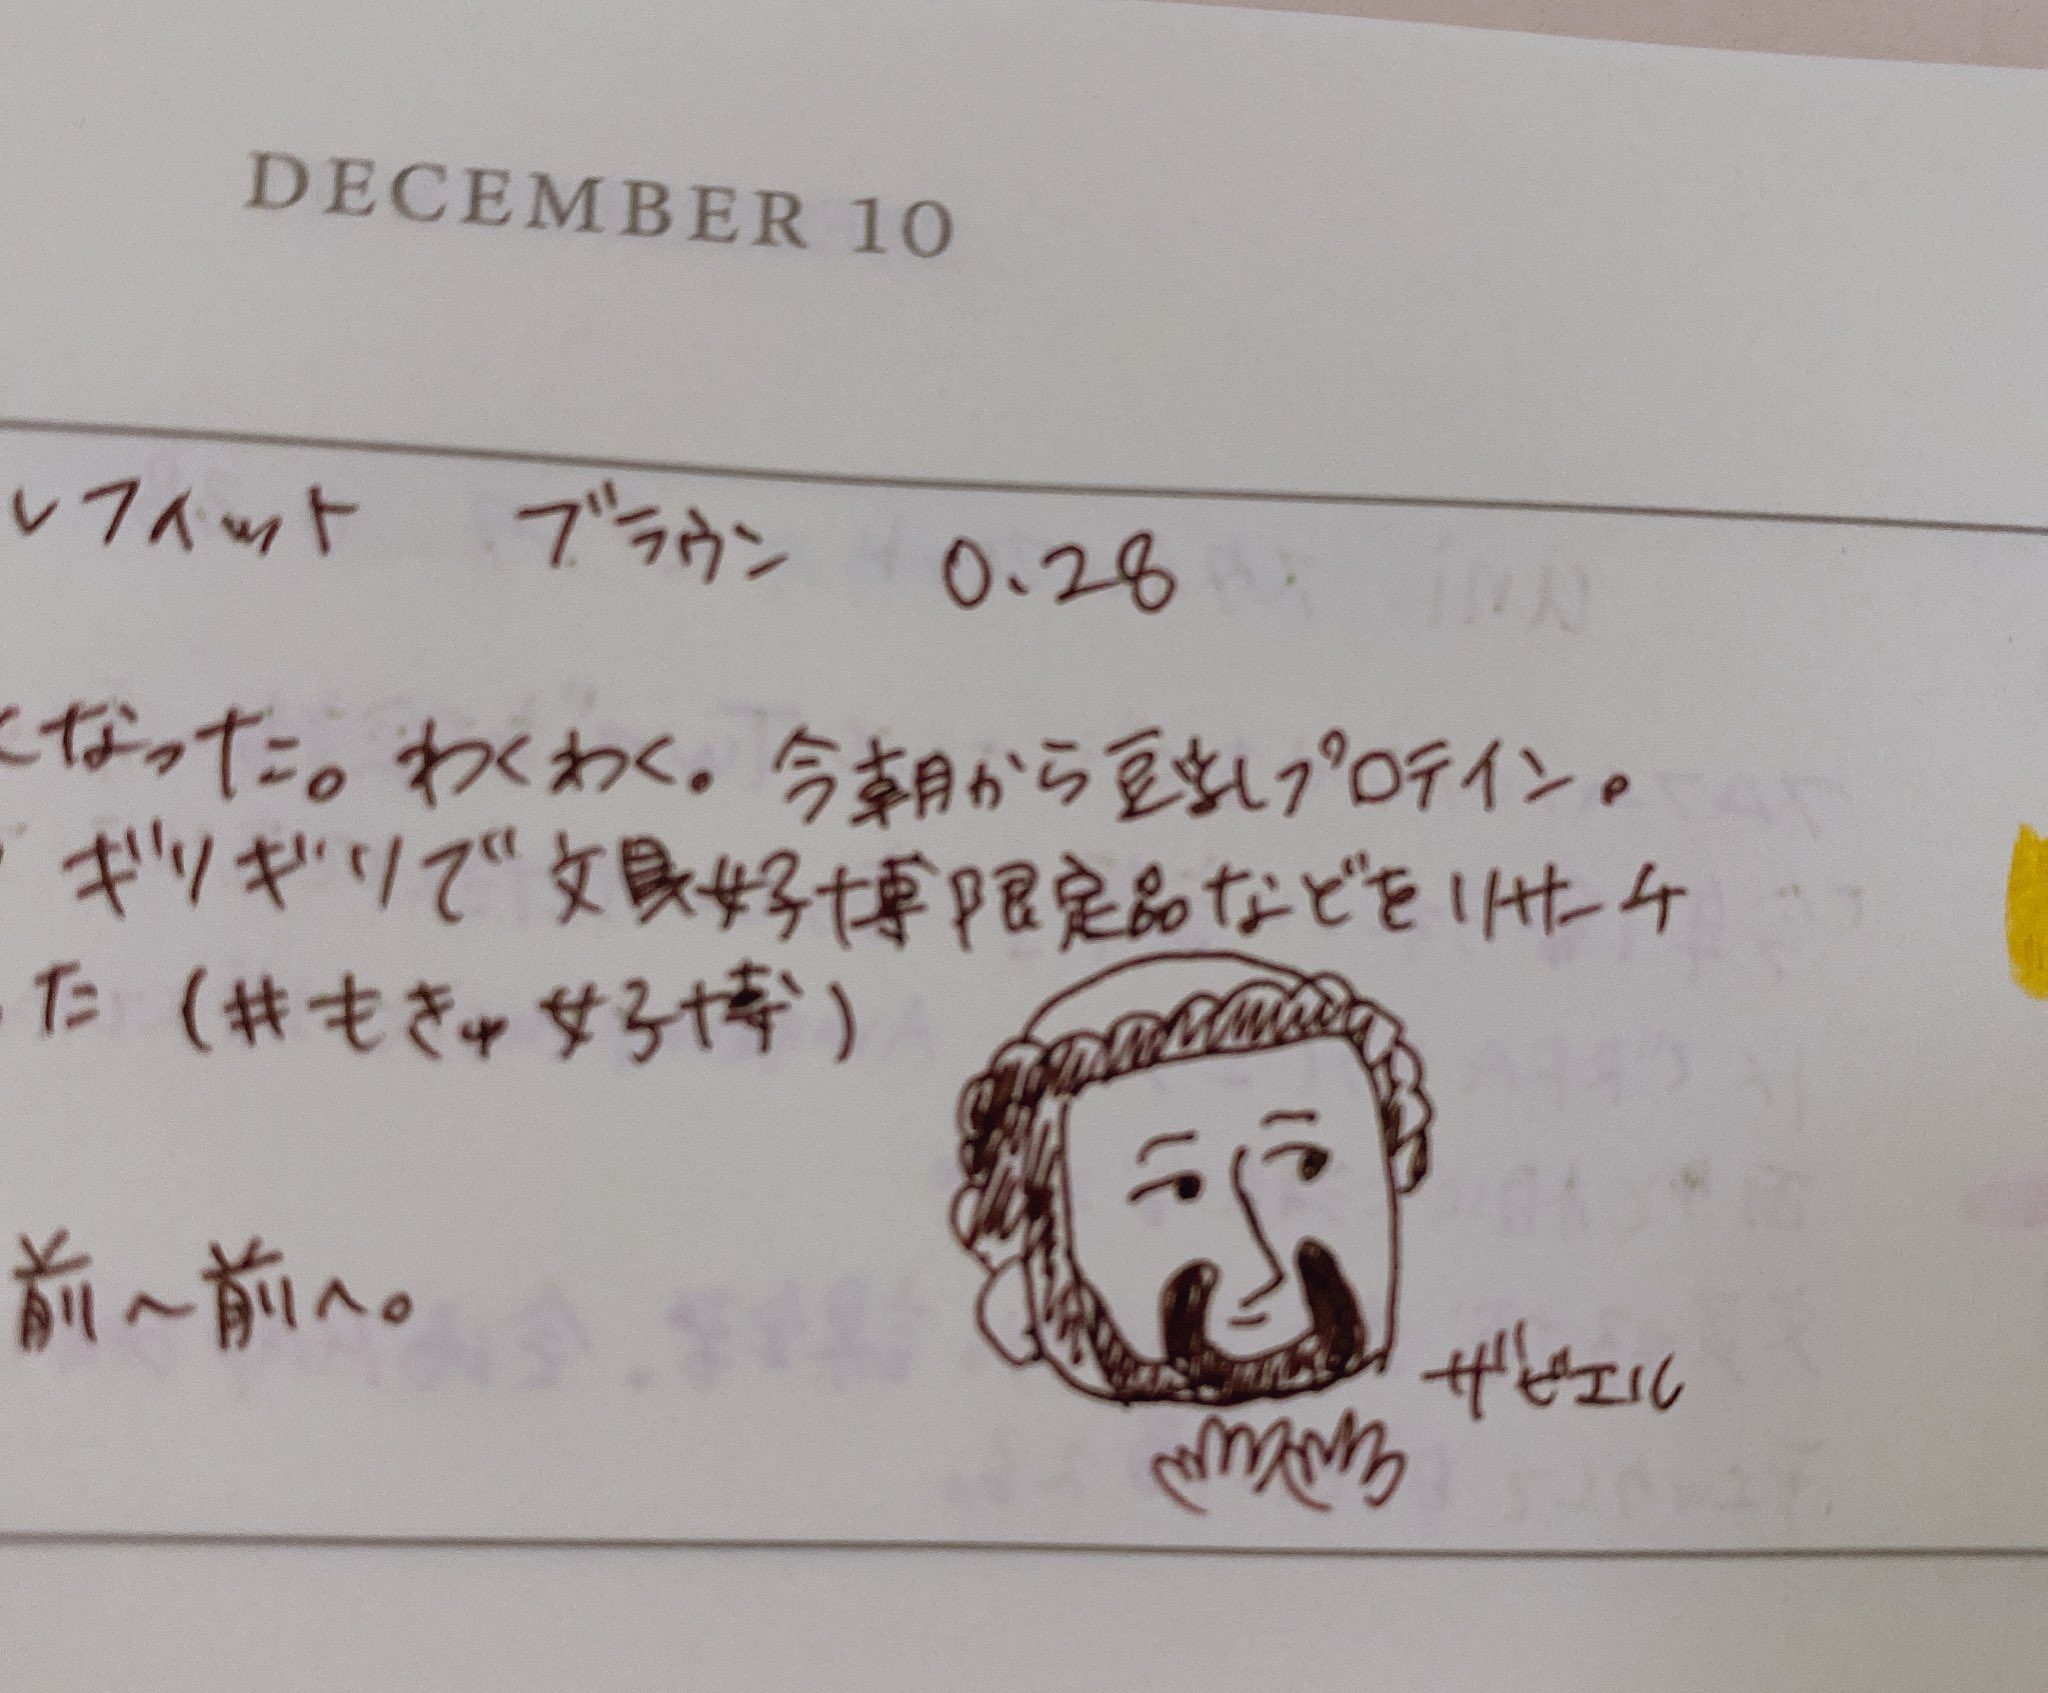 DECEMBER 10
レフィット ブラウン 0.28
くなった。わくわく。今朝から豆乳プロテイン。
ギリギリで文具女子博限定品などをリサーチ
た(#もきゅ女子博)
前へ前へ。
ザビエル